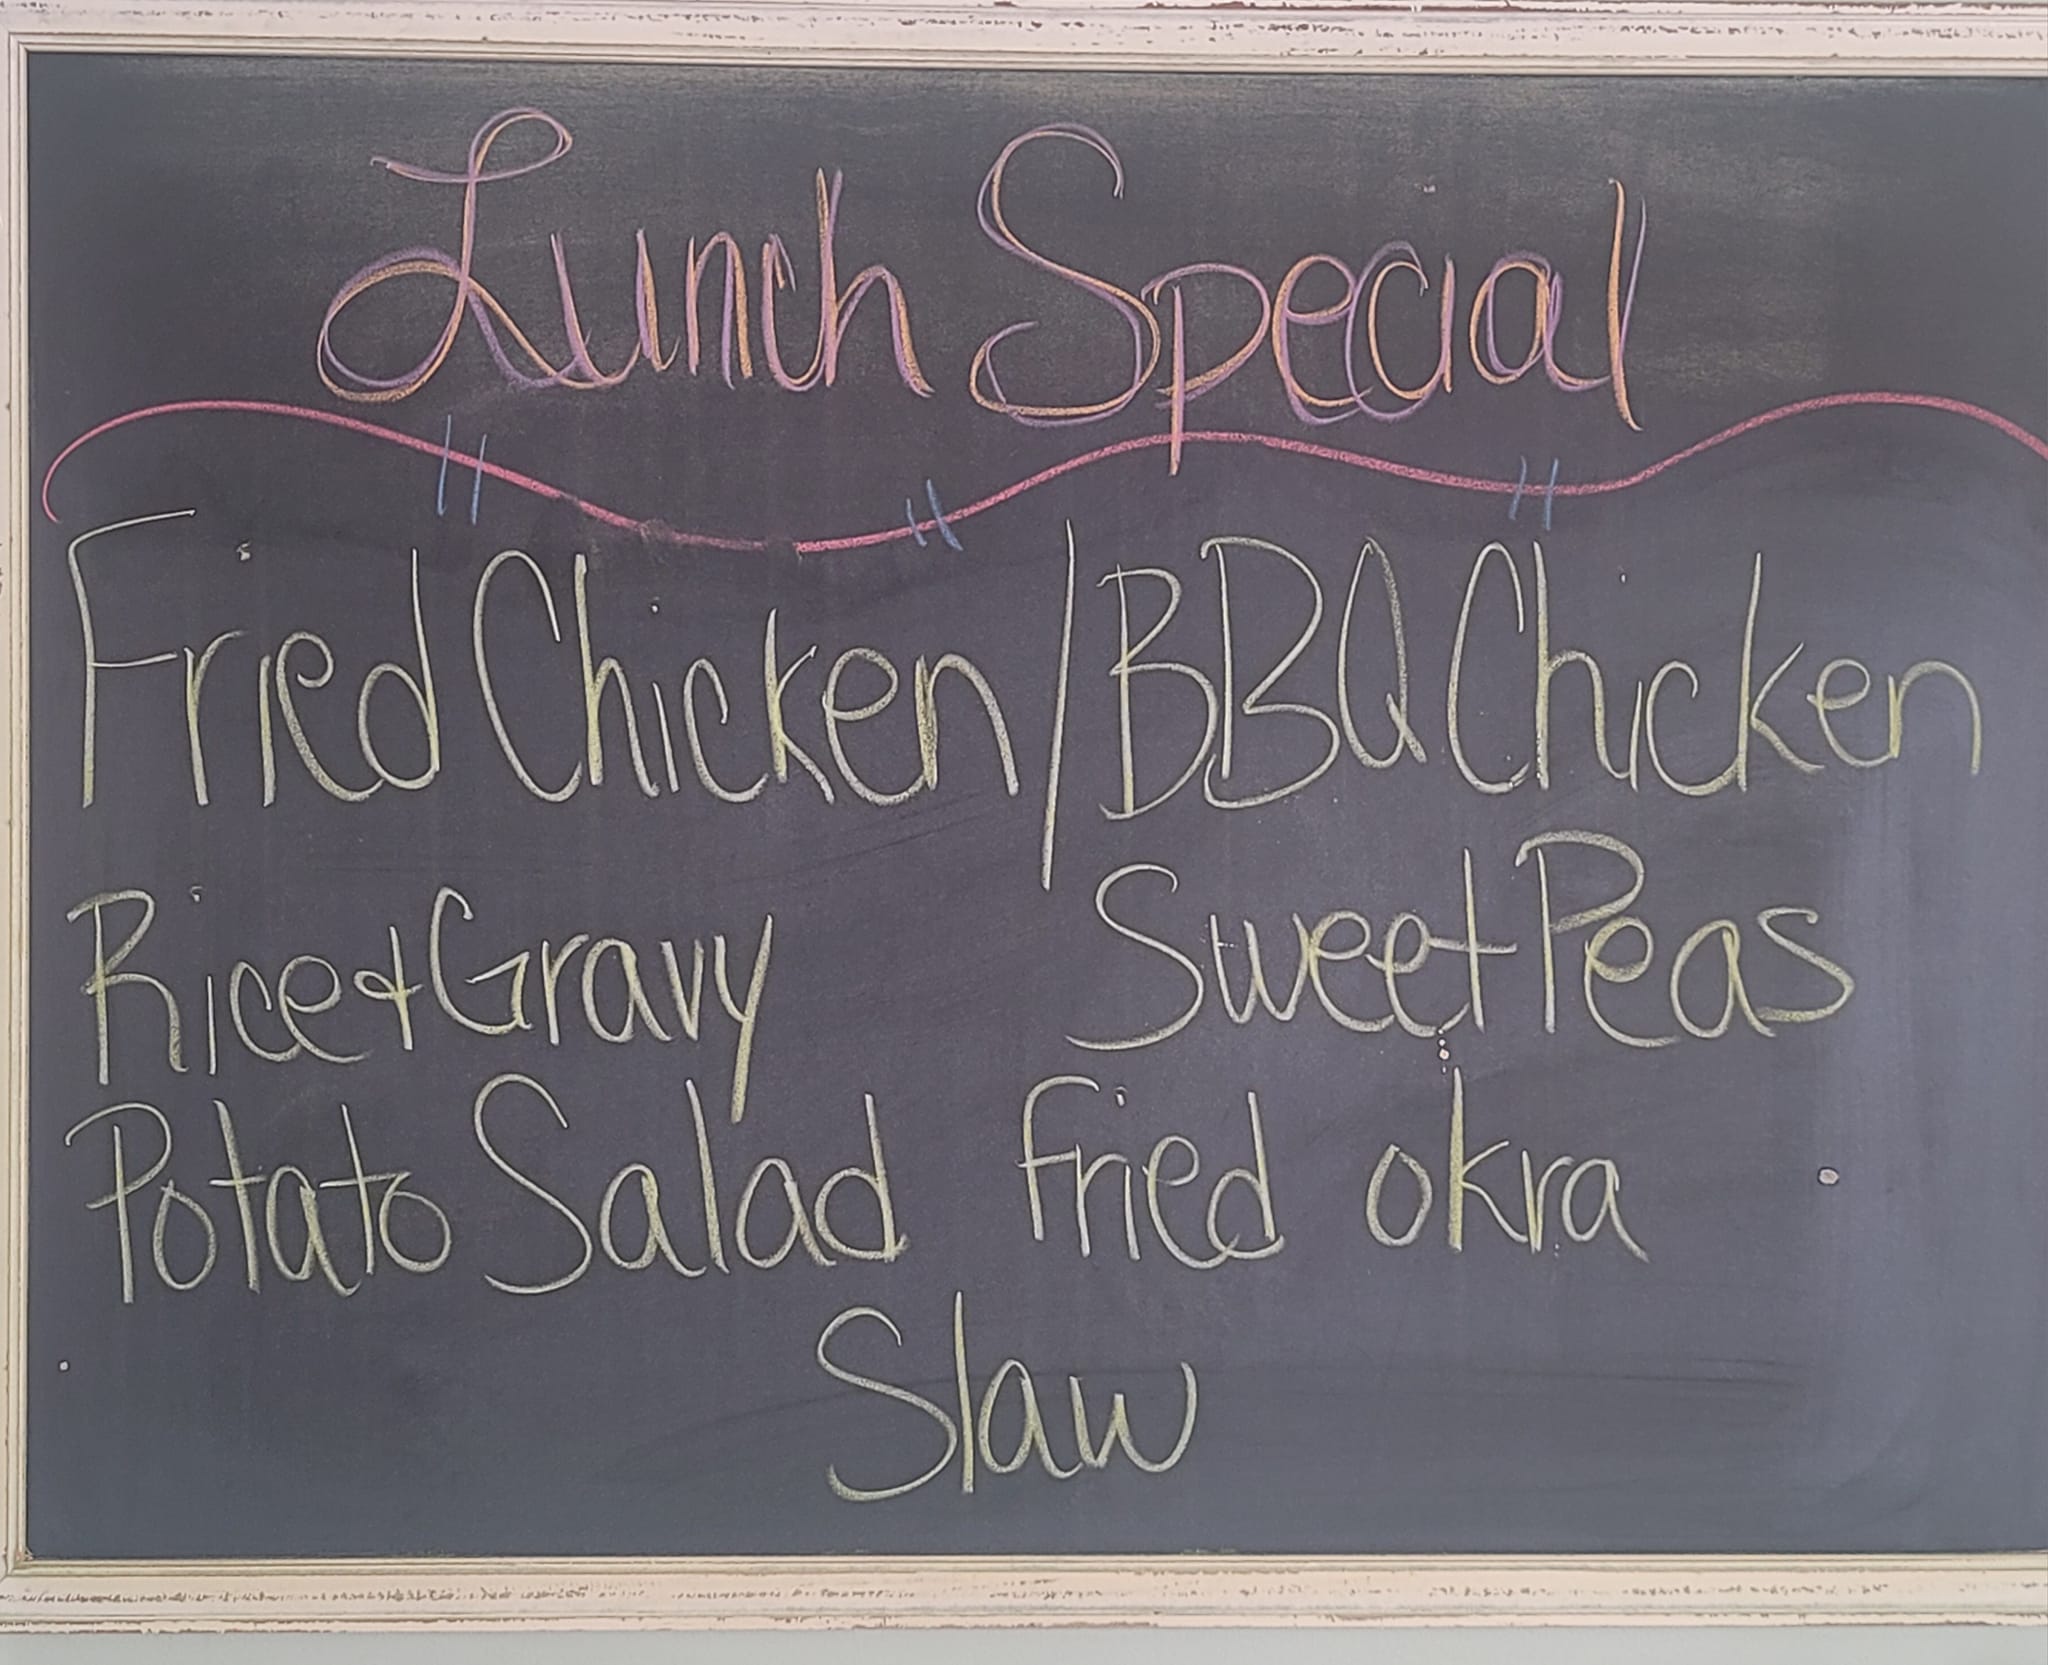 Lunch Special
Fried Chicken/BBQ Chicken
Rice & Gravy Sweet Peas
Potato Salad Fried okra
Slaw